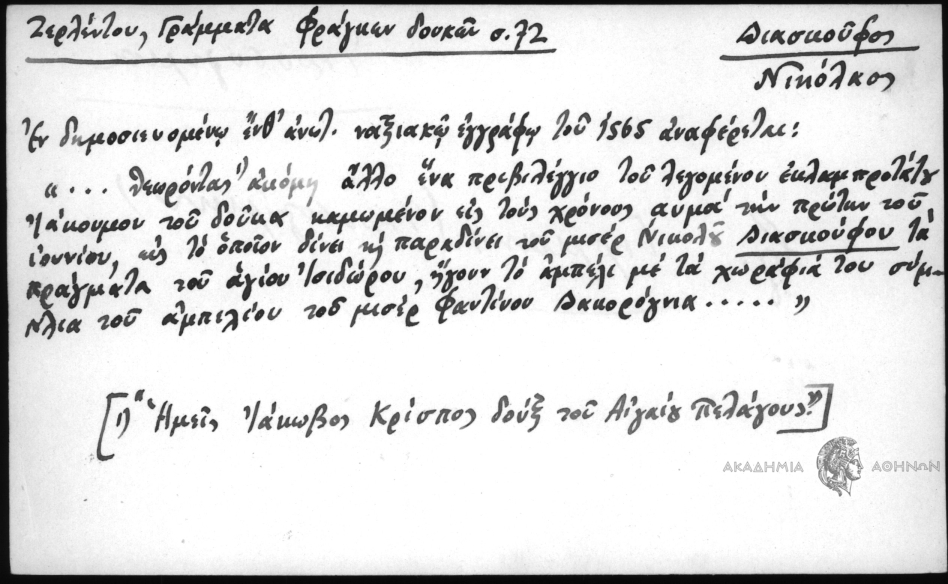 Ζερλέντου, Γράμματα Φράγκων δουκῶν σ. 72
Διασκοῦφος
Νικόλαος
Ἐν δημοσιευομένῳ ἔνθ' ἀνωτ. ναξιακῷ ἐγγράφῳ τοῦ 1565 ἀναφέρεται:
"... θεωρόντας ἀκόμη ἄλλο ἕνα πρεβιλέγγιο τοῦ λεγομένου ἐκλαμπροτάτου
Ἰάκουμου τοῦ δοῦκα καμωμένον εἰς τοὺς χρόνους αυμα τὴν πρώτην τοῦ
ἰουνίου, εἰς τὸ ὁποῖον δίνει κὴ παραδίνει τοῦ μισὲρ Νικολοῦ Διασκούφου τὰ
πράγματα τοῦ ἁγίου Ἰσιδώρου, ἤγουν τὸ ἀμπέλι μὲ τὰ χωράφιά του σύμ-
πλια τοῦ ἀμπελίου τοῦ μισὲρ Φαντίνου Δακορόγνια ....."
[1) "Ἡμεῖς Ἰάκωβος Κρίσπος δοὺξ τοῦ Αἰγαίου Πελάγους"]
ΑΚΑΔΗΜΙΑ ΑΘΗΝΩΝ